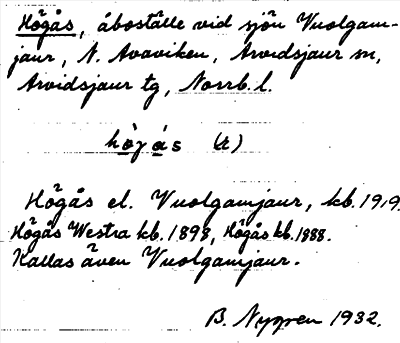 Högås, åboställe vid sjön Vuolgam-
jaur, N. Avaviken, Arvidsjaur sn,
Arvidsjaur tg, Norrb. l.
hògás (t)
Högås el. Vuolgamjaur, kb. 1919.
Högås Westra kb. 1898, Högås kb. 1888.
Kallas även Vuolgamjaur.
B. Nyppen 1932.